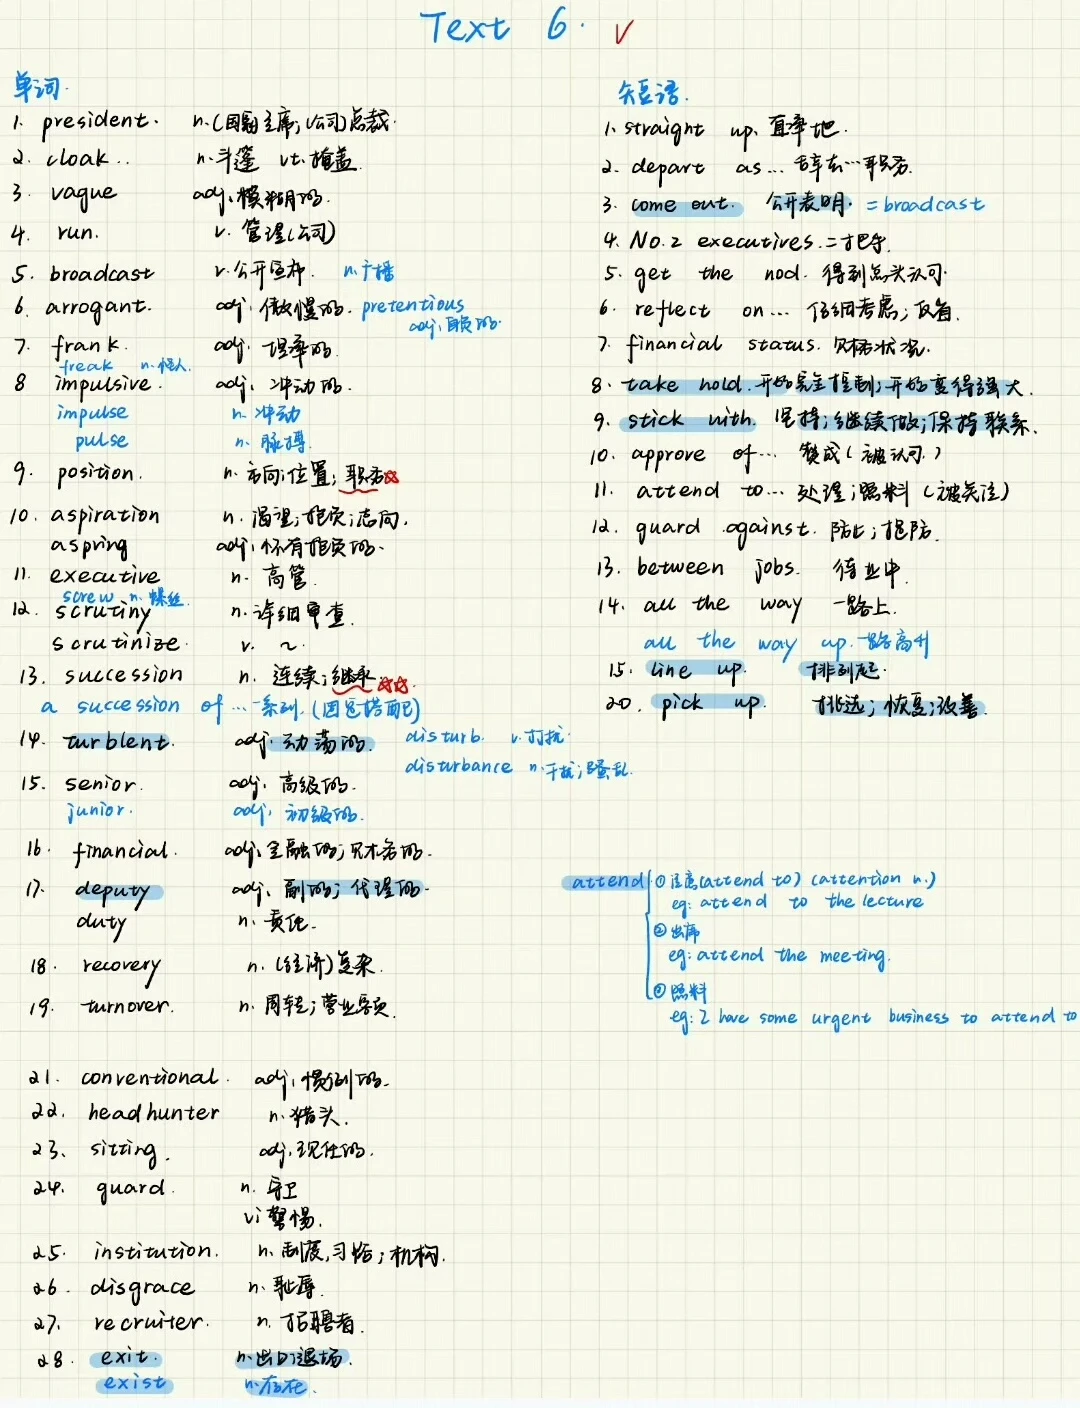 Text 6. √
单词.
1. president. n.(国家)主席;(公司)总裁.
2. cloak.. n.斗篷 vt.掩盖.
3. vague adj.模糊的.
4. run. v. 管理(公司)
5. broadcast v.公开宣布. n.广播
6. arrogant. adj.傲慢的. pretentious
adj.自负的.
7. frank. adj. 坦率的.
freak n.怪人.
8 impulsive. adj. 冲动的.
impulse n. 冲动
pulse n. 脉搏.
9. position. n.方向;位置;职务
10. aspiration n. 渴望;抱负;志向.
aspring adj.怀有抱负的.
11. executive n. 高管.
screw n.螺丝.
12. scrutiny n.详细审查.
scrutinize. v. ~
13. succession n. 连续;继承
a succession of ... 一系列.(固定搭配)
14. turblent. adj.动荡的. disturb. v.打扰.
disturbance n.干扰;骚乱.
15. senior. adj. 高级的.
junior. adj. 初级的.
16. financial. adj.金融的;财务的.
17. deputy adj. 副的;代理的.
duty n.责任.
18. recovery n.(经济)复苏.
19. turnover. n.周转;营业额.
21. conventional. adj.惯例的.
22. headhunter n.猎头.
23. sitting. adj.现任的.
24. guard. n.守卫
vi警惕.
25. institution. n.制度,习俗;机构.
26. disgrace n.耻辱.
27. recruiter. n.招聘者.
28. exit. n.出口;退场.
exist n.存在.
短语.
1. straight up. 直率地.
2. depart as... 辞去...职务.
3. come out. 公开表明. = broadcast
4. No.2 executives.二把手.
5. get the nod. 得到点头认可.
6. reflect on... 仔细考虑;反省.
7. financial status.财务状况.
8. take hold.开始完全控制;开始变得强大.
9. stick with. 坚持;继续做;保持联系.
10. approve of... 赞成(被认可.)
11. attend to... 处理;照料(被关注)
12. guard against. 防止;提防.
13. between jobs. 待业中.
14. all the way 一路上.
all the way up.一路高升
15. line up. 排列起.
20. pick up. 挑选;恢复;改善.
attend ①注意(attend to) (attention n.)
eg: attend to the lecture
②出席
eg: attend the meeting.
③照料
eg: I have some urgent business to attend to